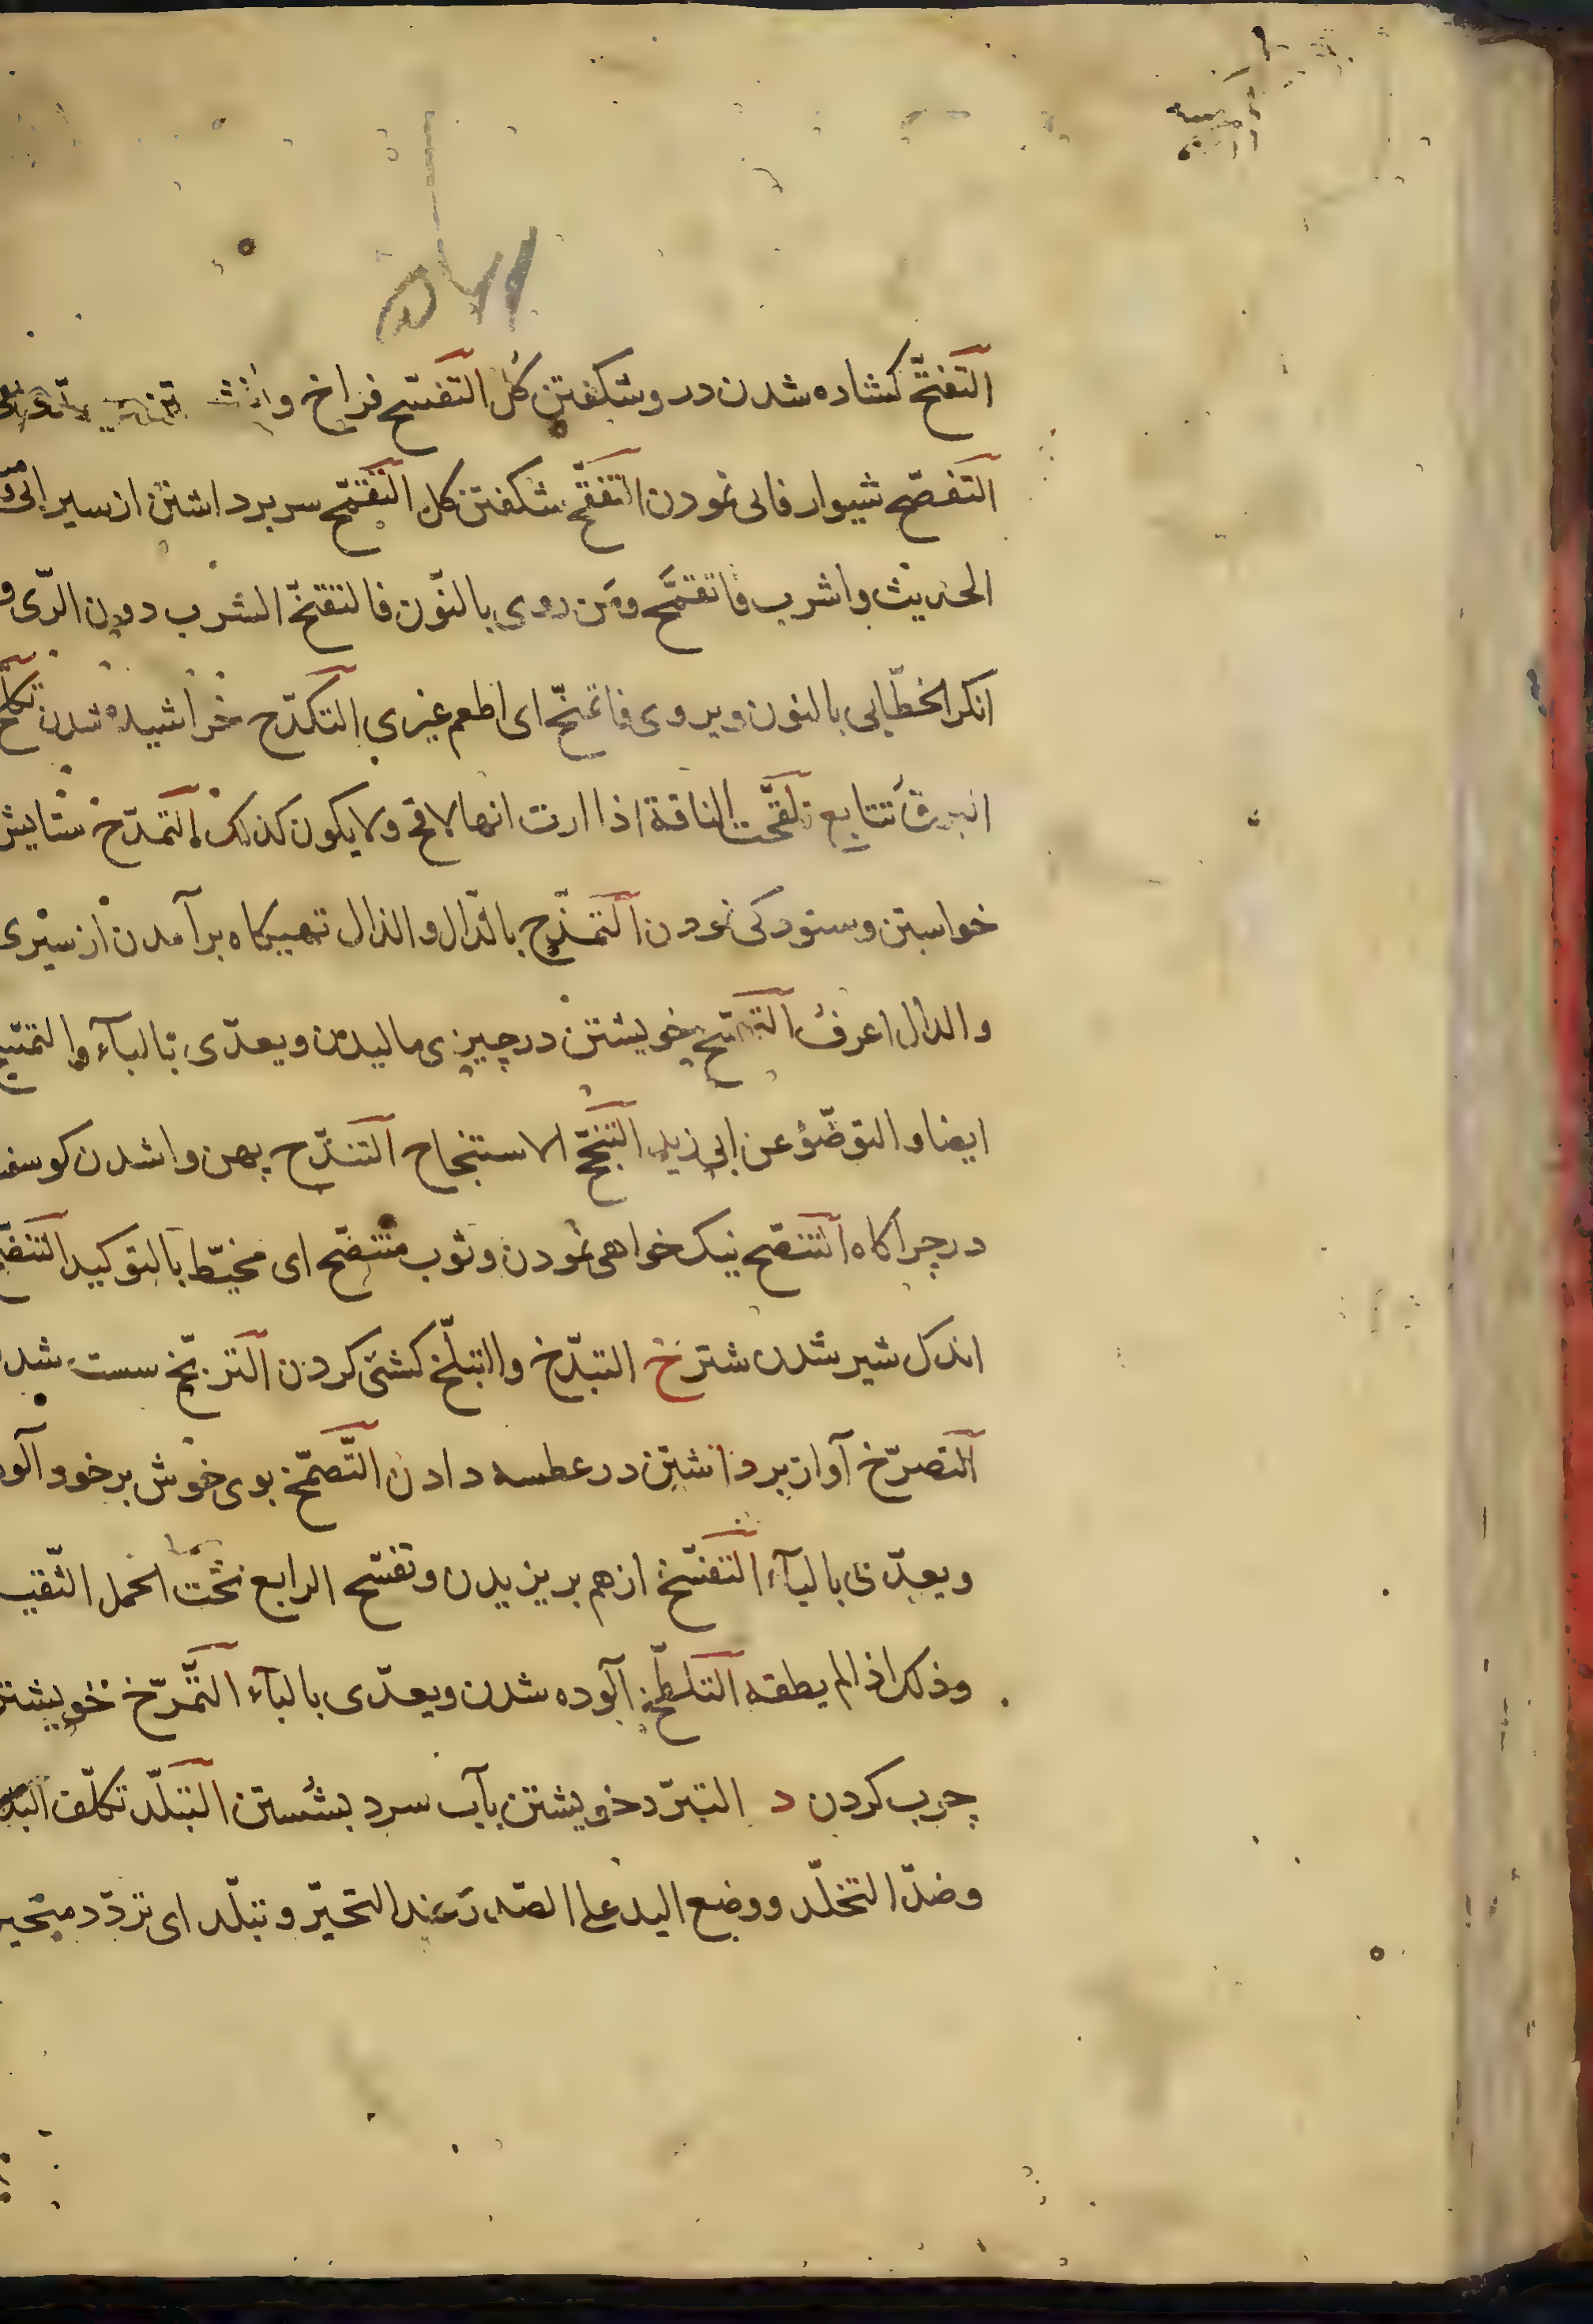 التَفتّح كشاده شدن در و شكفتن كل التَفسّح فراخ وا
التَفصّح شيوار فالى نمودن التَفقّح شكفتن كل التَقمّح سر برداشتن از سيرابى و
الحديث واشرب فاتقمَّح ومَن روى بالنّون فالتقنّح الشرب دون الرّى و
انكر الخطّابى بالنون ويروى فاتمنّح اى اطعم غيرى التَكدّح خراشيده شدن تكلّح
البرق تتايع تلَقّحت الناقة اذا ارت انها لاقح ولا يكون كذلك التَمدّح ستايش
خواستن وستودكى نمودن التَمذّح بالدّال والذال تهيكاه برآمدن از سيرى
والدال اعرف التَمسّح خويشتن در چيزى ماليدن ويعدّى بالبآء و
ايضا والتوضّؤ عن ابى زيد التَنجّح الاستنجاح التَندّح پهن واشدن كوسفند
در چراكاه التَنصّح نيك خواهى نمودن وثوب متنصّح اى مخيّط بالتوكيد
اندك شير شدن شتر خ التبدّخ والتبلّخ كشى كردن التَربّخ سست شدن
التَصرّخ آواز برداشتن در عطسه دادن التَّصمّخ بوى خوش بر خود آلودن
ويعدّى بالبآء التَفسّخ از هم بريزيدن وتفسّح الرابع تحت الحمل الثقيل
وذلك اذا لم يطقه التَلطّخ آلوده شدن ويعدّى بالبآء التَّمرّخ خويشتن
چرب كردن د التبرّد خويشتن بآب سرد بشستن التَبلّد تكلّف
وضدّ التجلّد ووضع اليد على الصّدر عند التحيّر وتبلّد اى تردّد متحيرا